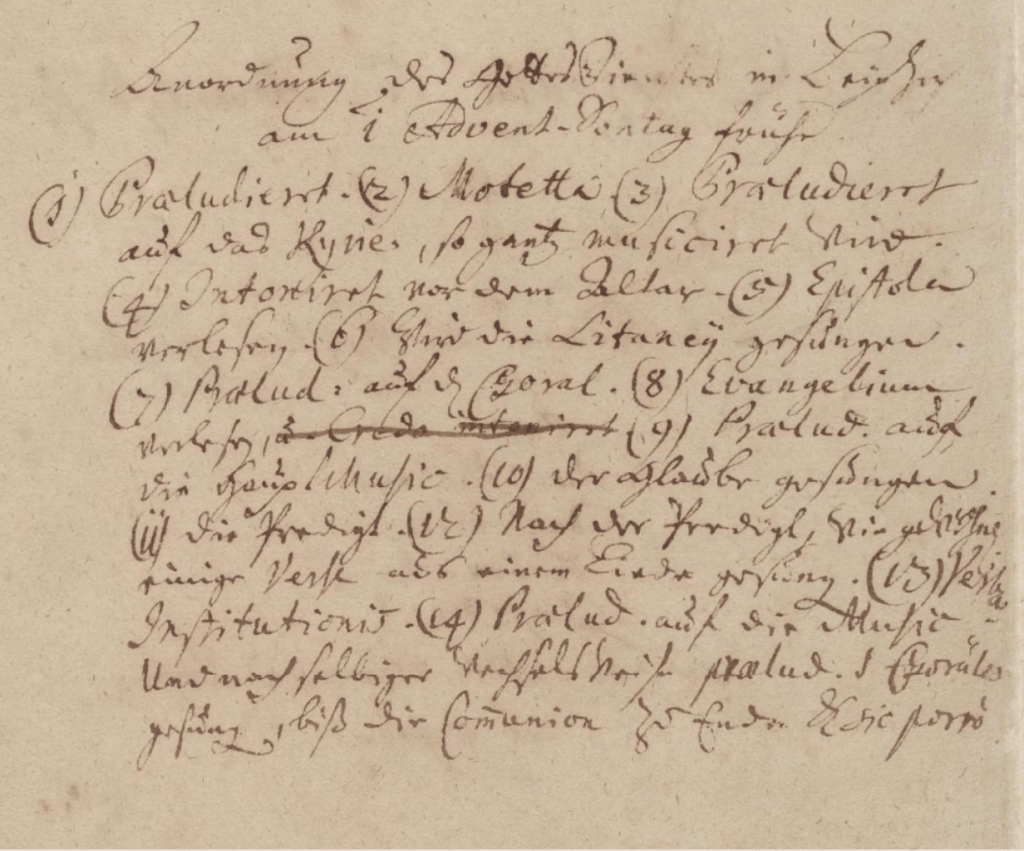 Anordnung des GottesDienstes in Leipzig
am 1 Advent-Sontag frühe
(1) Præludieret. (2) Motetta (3) Præludieret
auf das Kyrie, so gantz musiciret wird.
(4) Intoniret vor dem Altar. (5) Epistola
verlesen. (6) Wird die Litaney gesungen.
(7) Prælud: auf den Choral. (8) Evangelium
verlesen, u. Credo intoniret (9) Prælud. auf
die HauptMusic. (10) der Glaube gesungen.
(11) die Predigt. (12) Nach der Predigt, wie gewöhnl.
einige Verse aus einem Liede gesung. (13) Verba
Institutionis. (14) Prælud. auf die Music
Und nach selbiger wechselsweise prælud. v Choräle
gesung, biß die Communion zu Ende & sic porrò